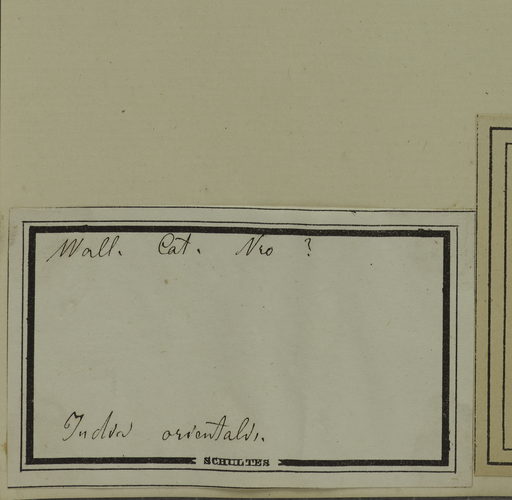 Wall. Cat. Nro ?
India orientalis.
SCHULTES